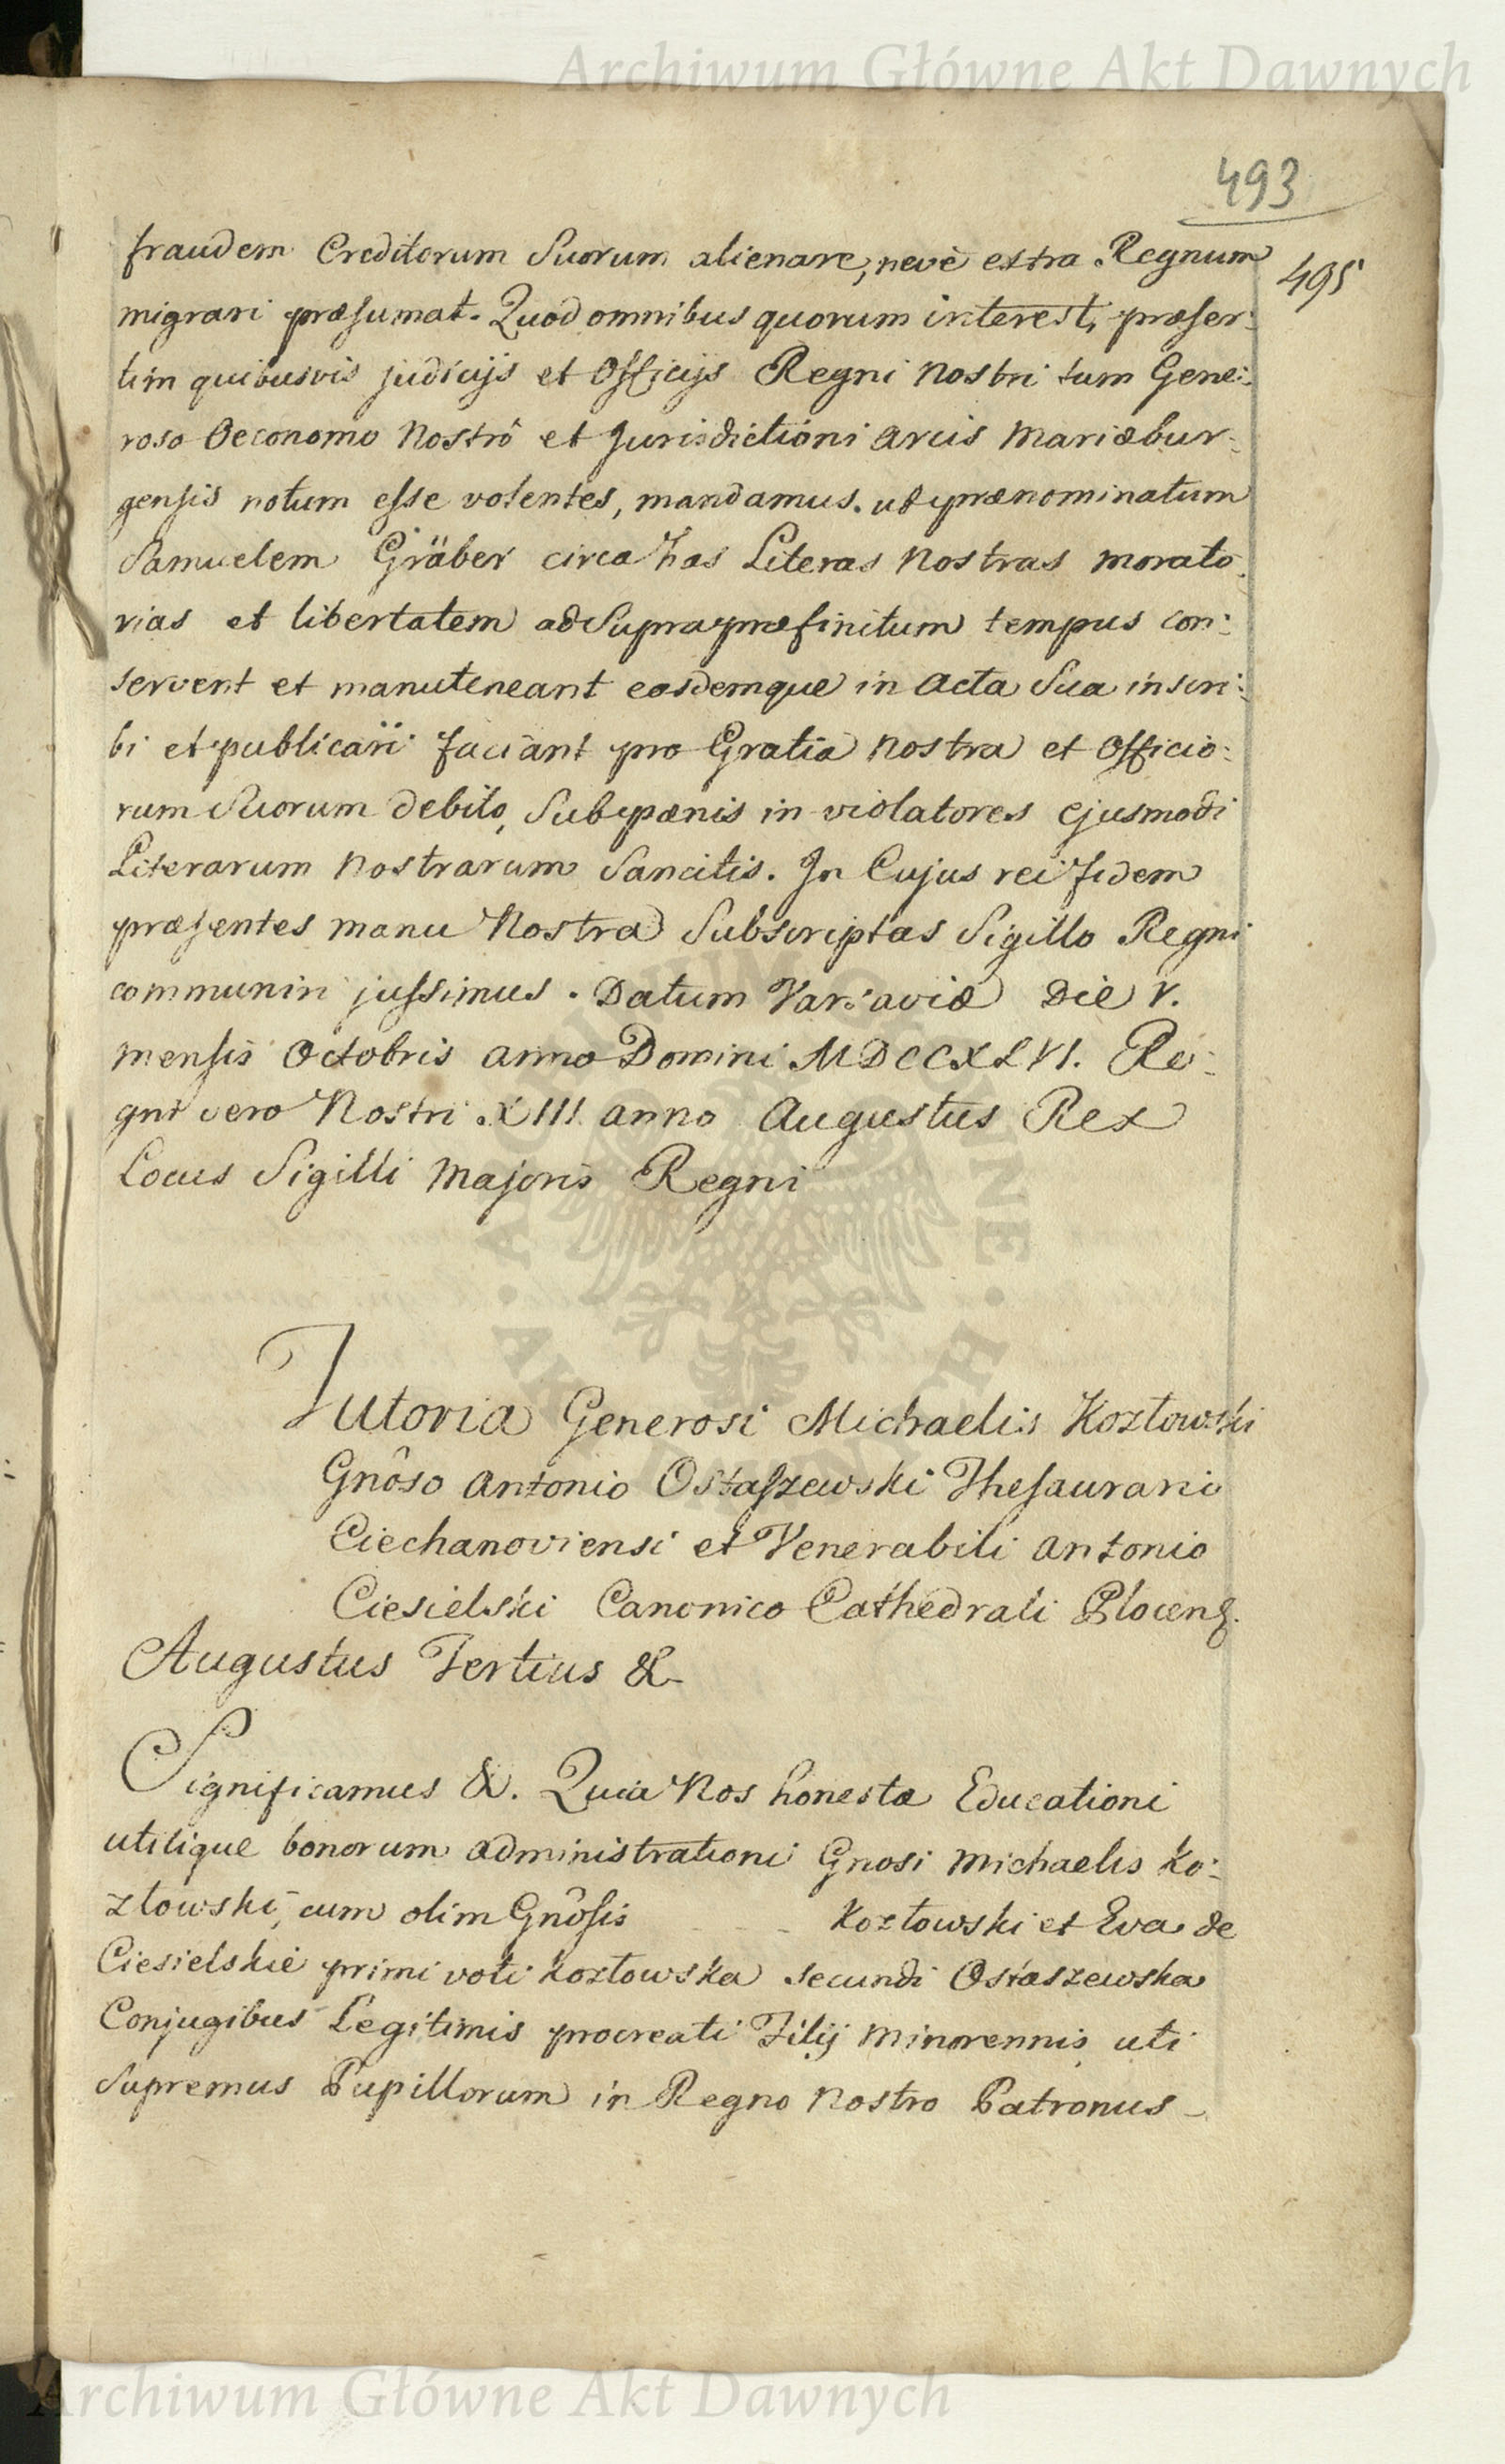 Archiwum Główne Akt Dawnych
493
495
fraudem Creditorum Suorum alienare, nevè extra Regnum
migrari præsumat. Quod omnibus quorum interest, præser:
tim quibusvis judicijs et Officijs Regni Nostri tum Gene:
roso Oeconomo Nostrô et Jurisdictioni Arcis Mariæbur:
gensis notum esse volentes, mandamus. ut prænominatum
Samuelem Gräber circa has Literas Nostras morato:
rias et libertatem ad Supra præfinitum tempus con:
servent et manuteneant easdemque in Acta Sua inscri:
bi et publicari faciant pro Gratia Nostra et Officio:
rum Suorum debito, Sub pœnis in violatores ejusmodi
Literarum Nostrarum Sancitis. In Cujus rei fidem
præsentes manu Nostra Subscriptas Sigillo Regni
communiri jussimus. Datum Varsaviæ Die V.
mensis Octobris anno Domini MDCCXLVI. Re:
gni vero Nostri XIII anno Augustus Rex
Locus Sigilli Majoris Regni
Tutoria Generosi Michaelis Kozłowski
Gnôso Antonio Ostaszewski Thesaurario
Ciechanoviensi et Venerabili Antonio
Ciesielski Canonico Cathedrali Plocens.
Augustus Tertius &
Significamus &. Quia Nos honestæ Educationi
utilique bonorum administrationi Gnosi Michaelis Ko:
złowski, cum olim Gnôsis - - - Kozłowski et Eva de
Ciesielskie primi voti Kozłowska secundi Ostaszewska
Conjugibus Legitimis procreati Filij Minorennis uti
Supremus Pupillorum in Regno Nostro Patronus
Archiwum Główne Akt Dawnych